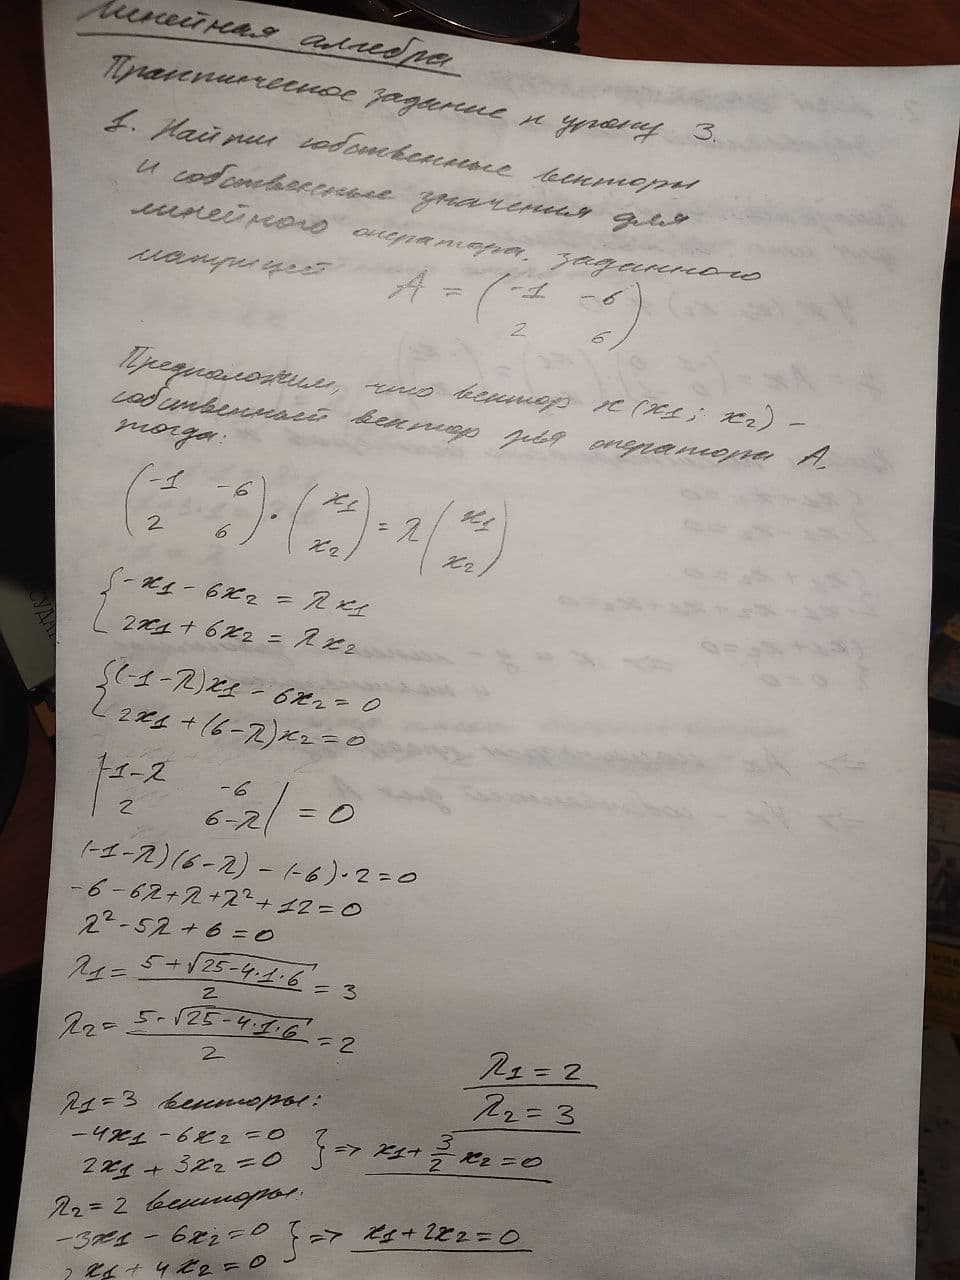 Линейная алгебра
Практическое задание к уроку 3.
1. Найти собственные векторы
и собственные значения для
линейного оператора, заданного
матрицей A = (-1 -6
2 6)
Предположим, что вектор x(x1; x2) -
собственный вектор для оператора A,
тогда:
(-1 -6
2 6) · (x1
x2) = λ (x1
x2)
{-x1 - 6x2 = λx1
2x1 + 6x2 = λx2
{(-1-λ)x1 - 6x2 = 0
2x1 + (6-λ)x2 = 0
|-1-λ -6
2 6-λ| = 0
(-1-λ)(6-λ) - (-6)·2 = 0
-6 - 6λ + λ + λ² + 12 = 0
λ² - 5λ + 6 = 0
λ1 = (5 + √(25 - 4·1·6))/2 = 3
λ2 = (5 - √(25 - 4·1·6))/2 = 2
λ1 = 2
λ2 = 3
λ1 = 3 векторы:
-4x1 - 6x2 = 0
2x1 + 3x2 = 0 } => x1 + 3/2 x2 = 0
λ2 = 2 векторы:
-3x1 - 6x2 = 0 } => x1 + 2x2 = 0
2x1 + 4x2 = 0